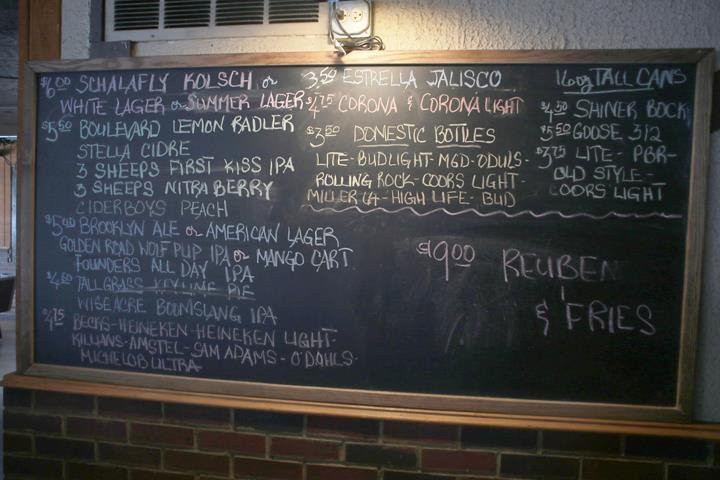 $6.00 SCHALAFLY KOLSCH or
WHITE LAGER or SUMMER LAGER
$5.50 BOULEVARD LEMON RADLER
STELLA CIDRE
3 SHEEPS FIRST KISS IPA
3 SHEEPS NITRA BERRY
CIDERBOYS PEACH
$5.00 BROOKLYN ALE or AMERICAN LAGER
GOLDEN ROAD WOLF PUP IPA or MANGO CART
FOUNDERS ALL DAY IPA
$4.50 TALLGRASS KEYLIME PIE
WISEACRE BOOMSLANG IPA
$4.75 BECKS-HEINEKEN-HEINEKEN LIGHT-
KILLIANS-AMSTEL-SAM ADAMS-O'DAHLS-
MICHELOB ULTRA
3.50 ESTRELLA JALISCO
$4.75 CORONA & CORONA LIGHT
$3.50 DOMESTIC BOTTLES
LITE-BUDLIGHT-MGD-ODULS-
ROLLING ROCK-COORS LIGHT-
MILLER 64-HIGH LIFE-BUD
16oz TALL CANS
$4.50 SHINER BOCK
$5.50 GOOSE 312
$3.75 LITE-PBR-
OLD STYLE-
COORS LIGHT
$9.00 REUBEN
& FRIES